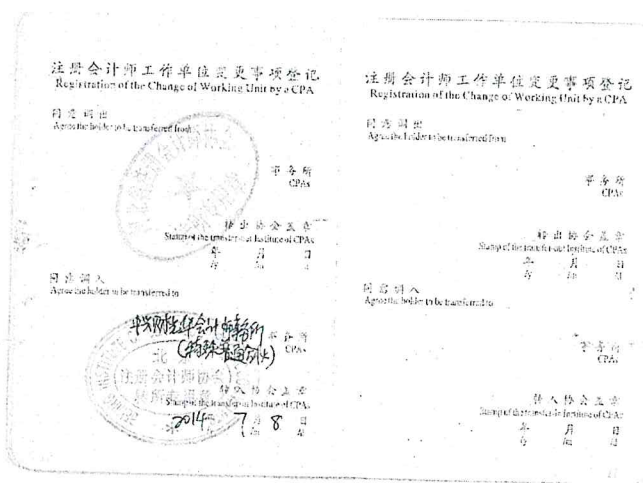 注册会计师工作单位变更事项登记
Registration of the Change of Working Unit by a CPA
同意调出
Agree the holder to be transferred from
事务所
CPAs
转出协会盖章
Stamp of the transfer-out Institute of CPAs
年 月 日
同意调入
Agree the holder to be transferred to
中兴财光华会计师事务所
(特殊普通合伙)
事务所
CPAs
北京
注册会计师协会
转入协会盖章
Stamp of the transfer-in Institute of CPAs
2014 7 8 日
注册会计师工作单位变更事项登记
Registration of the Change of Working Unit by a CPA
同意调出
Agree the holder to be transferred from
事务所
CPAs
转出协会盖章
Stamp of the transfer-out Institute of CPAs
年 月 日
同意调入
Agree the holder to be transferred to
事务所
CPAs
转入协会盖章
Stamp of the transfer-in Institute of CPAs
年 月 日